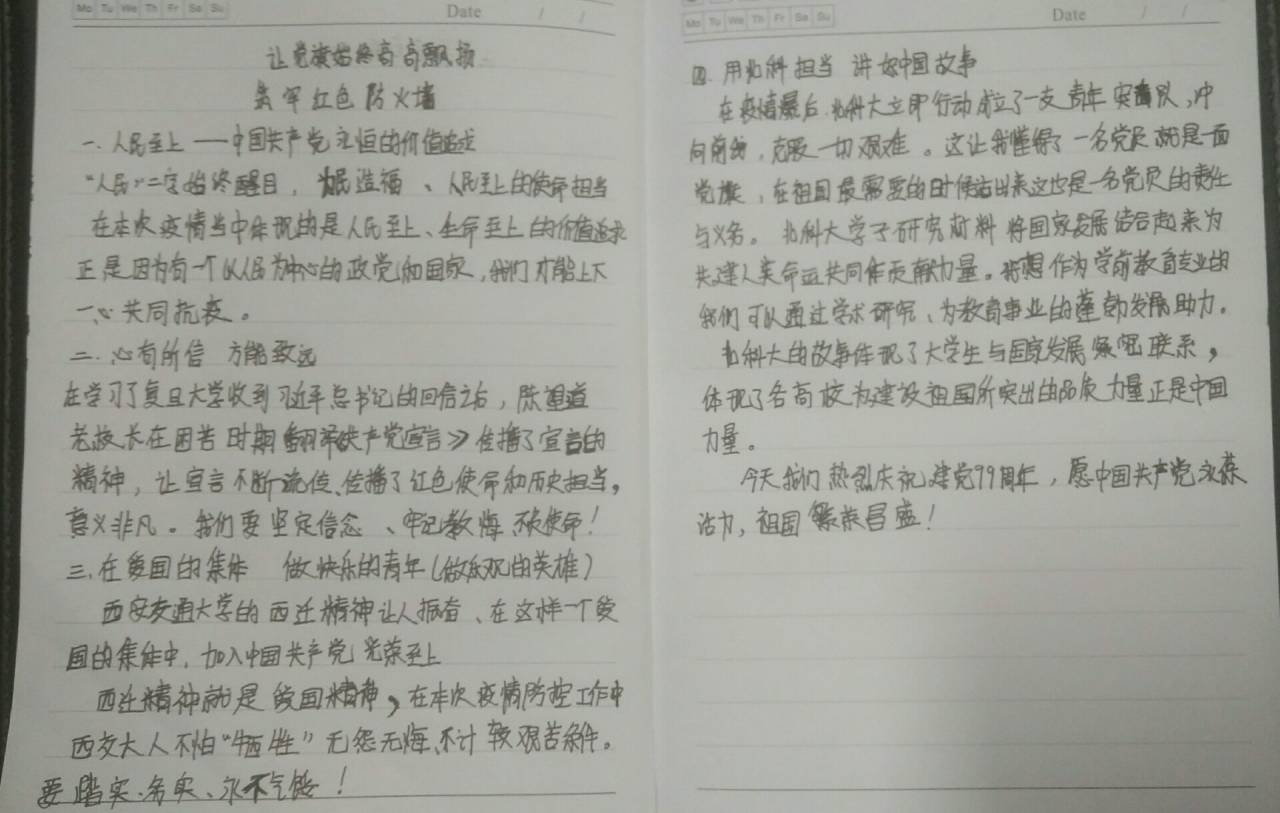 Mo Tu We Th Fr Sa Su Date / /
让党旗始终高高飘扬
筑牢红色防火墙
一、人民至上——中国共产党永恒的价值追求
“人民”二字始终醒目，为民造福、人民至上的使命担当
在本次疫情当中体现的是人民至上、生命至上的价值追求
正是因为有一个以人民为中心的政党和国家，我们才能上下
一心共同抗疫。
二、心有所信 方能致远
在学习了复旦大学收到习近平总书记的回信之后，陈望道
老校长在困苦时期翻译《共产党宣言》传播了宣言的
精神，让宣言不断流传、传播了红色使命和历史担当，
意义非凡。我们要坚定信念、牢记教诲、不负使命！
三、在爱国的集体 做快乐的青年（做乐观的英雄）
西安交通大学的西迁精神让人振奋、在这样一个爱
国的集体中，加入中国共产党光荣至上
西迁精神就是爱国精神，在本次疫情防控工作中
西交大人不怕“牺牲”无怨无悔、不计较艰苦条件。
要踏实、务实、永不气馁！
Mo Tu We Th Fr Sa Su Date / /
四、用北科担当 讲好中国故事
在疫情爆后，北科大立即行动成立了一支青年突击队，冲
向前线，克服一切艰难。这让我懂得了一名党员就是一面
党旗，在祖国最需要的时候站出来这也是一名党员的责任
与义务。北科大学子研究材料将国家发展结合起来为
共建人类命运共同体贡献力量。我想作为学前教育专业的
我们可以通过学术研究、为教育事业的蓬勃发展助力。
北科大的故事体现了大学生与国家发展紧密联系，
体现了各高校为建设祖国所突出的品质力量正是中国
力量。
今天我们热烈庆祝建党99周年，愿中国共产党永葆
活力，祖国繁荣昌盛！